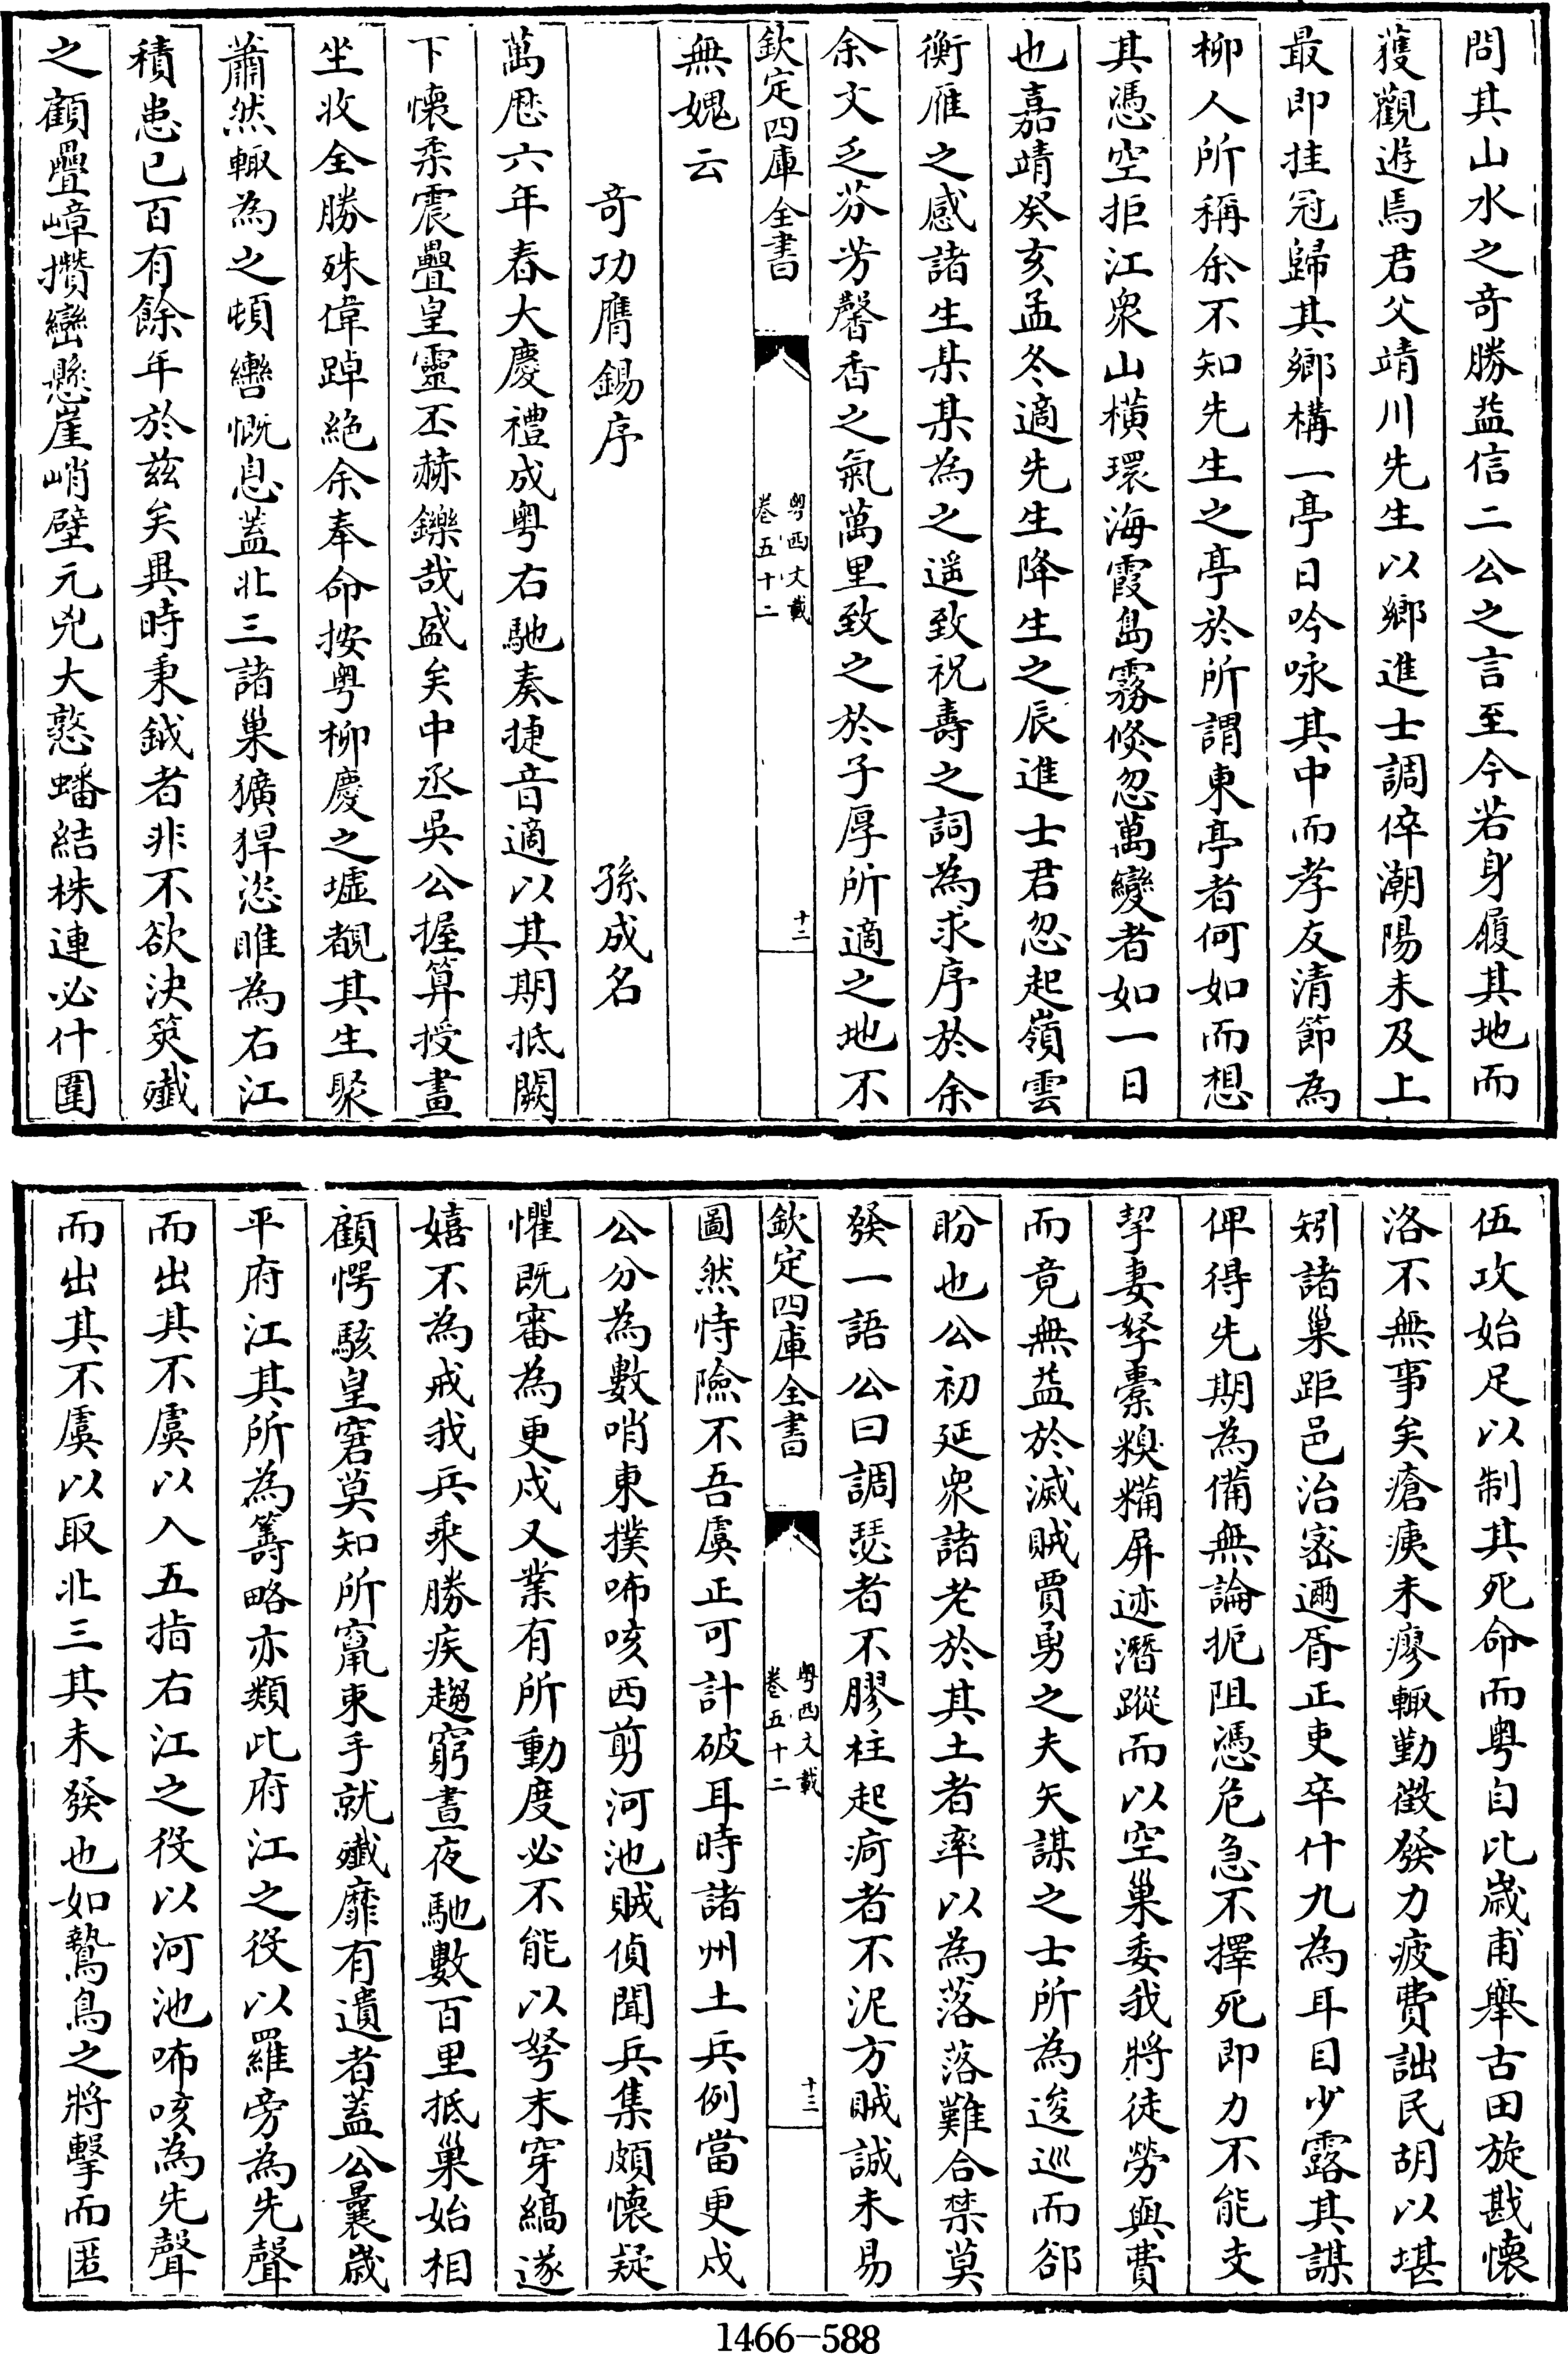 問其山水之奇勝益信二公之言至今若身履其地而
獲觀遊焉君父靖川先生以鄉進士調倅潮陽未及上
最即挂冠歸其鄉構一亭日吟咏其中而孝友清節為
柳人所稱余不知先生之亭於所謂東亭者何如而想
其憑空拒江衆山橫環海霞島霧倐忽萬變者如一日
也嘉靖癸亥孟冬適先生降生之辰進士君忽起嶺雲
衡雁之感諸生某某為之遥致祝壽之詞為求序於余
余文乏芬芳馨香之氣萬里致之於子厚所適之地不
欽定四庫全書
粤西文載
卷五十二
十二
無媿云
奇功膺錫序
孫成名
萬厯六年春大慶禮成粤右馳奏捷音適以其期抵闕
下懷柔震疊皇靈丕赫鑠哉盛矣中丞吳公握算授畫
坐收全勝殊偉踔絶余奉命按粤柳慶之墟覩其生聚
蕭然輙為之頓轡慨息蓋北三諸巢獷猂恣睢為右江
積患已百有餘年於兹矣異時秉鉞者非不欲決筴殲
之顧疊嶂攢巒懸崖峭壁元兇大憝蟠結株連必什圍
伍攻始足以制其死命而粤自比嵗甫舉古田旋戡懷
洛不無事矣瘡痍未瘳輙勤徵發力疲費詘民胡以堪
矧諸巢距邑治宻邇胥正吏卒什九為耳目少露其謀
俾得先期為備無論扼阻憑危急不擇死即力不能支
挈妻孥橐糗糒屏迹潛蹤而以空巢委我將徒勞與費
而竟無益於滅賊賈勇之夫矢謀之士所為逡巡而郤
盼也公初延衆諸老於其土者率以為落落難合禁莫
發一語公曰調瑟者不膠柱起疴者不泥方賊誠未易
欽定四庫全書
粤西文載
卷五十二
十三
圖然恃險不吾虞正可計破耳時諸州土兵例當更戍
公分為數哨東撲咘咳西剪河池賊偵聞兵集頗懷疑
懼既審為更戍又業有所動度必不能以弩末穿縞遂
嬉不為戒我兵乘勝疾趨窮晝夜馳數百里抵巢始相
顧愕駭皇窘莫知所竄束手就殲靡有遺者蓋公曩嵗
平府江其所為籌略亦類此府江之役以羅旁為先聲
而出其不虞以入五指右江之役以河池咘咳為先聲
而出其不虞以取北三其未發也如鷙鳥之將擊而匿
1466-588